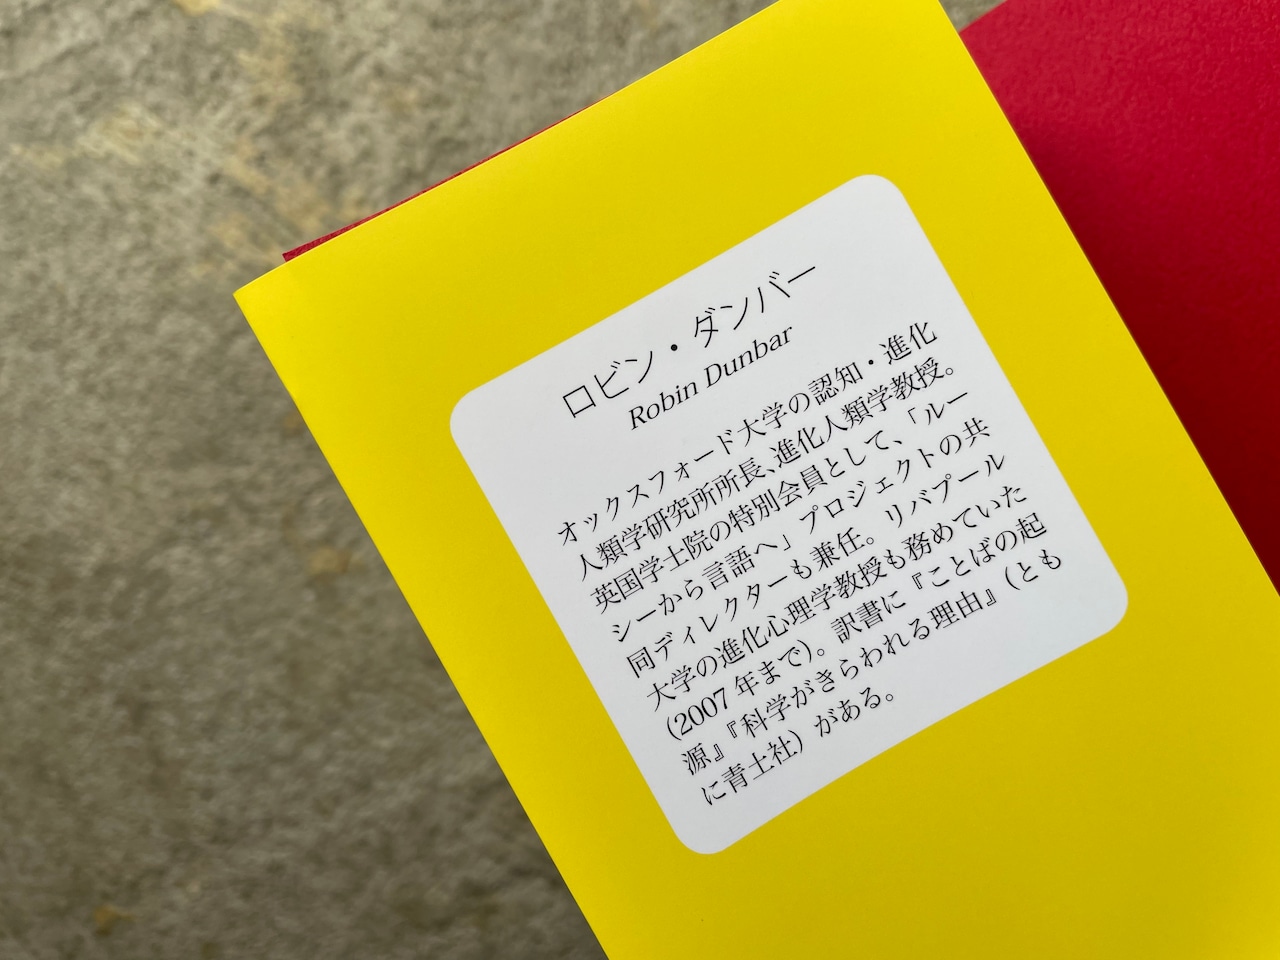 ロビン・ダンバー
Robin Dunbar
オックスフォード大学の認知・進化
人類学研究所所長、進化人類学教授。
英国学士院の特別会員として、「ルー
シーから言語へ」プロジェクトの共
同ディレクターも兼任。リバプール
大学の進化心理学教授も務めていた
(2007年まで)。訳書に『ことばの起
源』『科学がきらわれる理由』(とも
に青土社)がある。